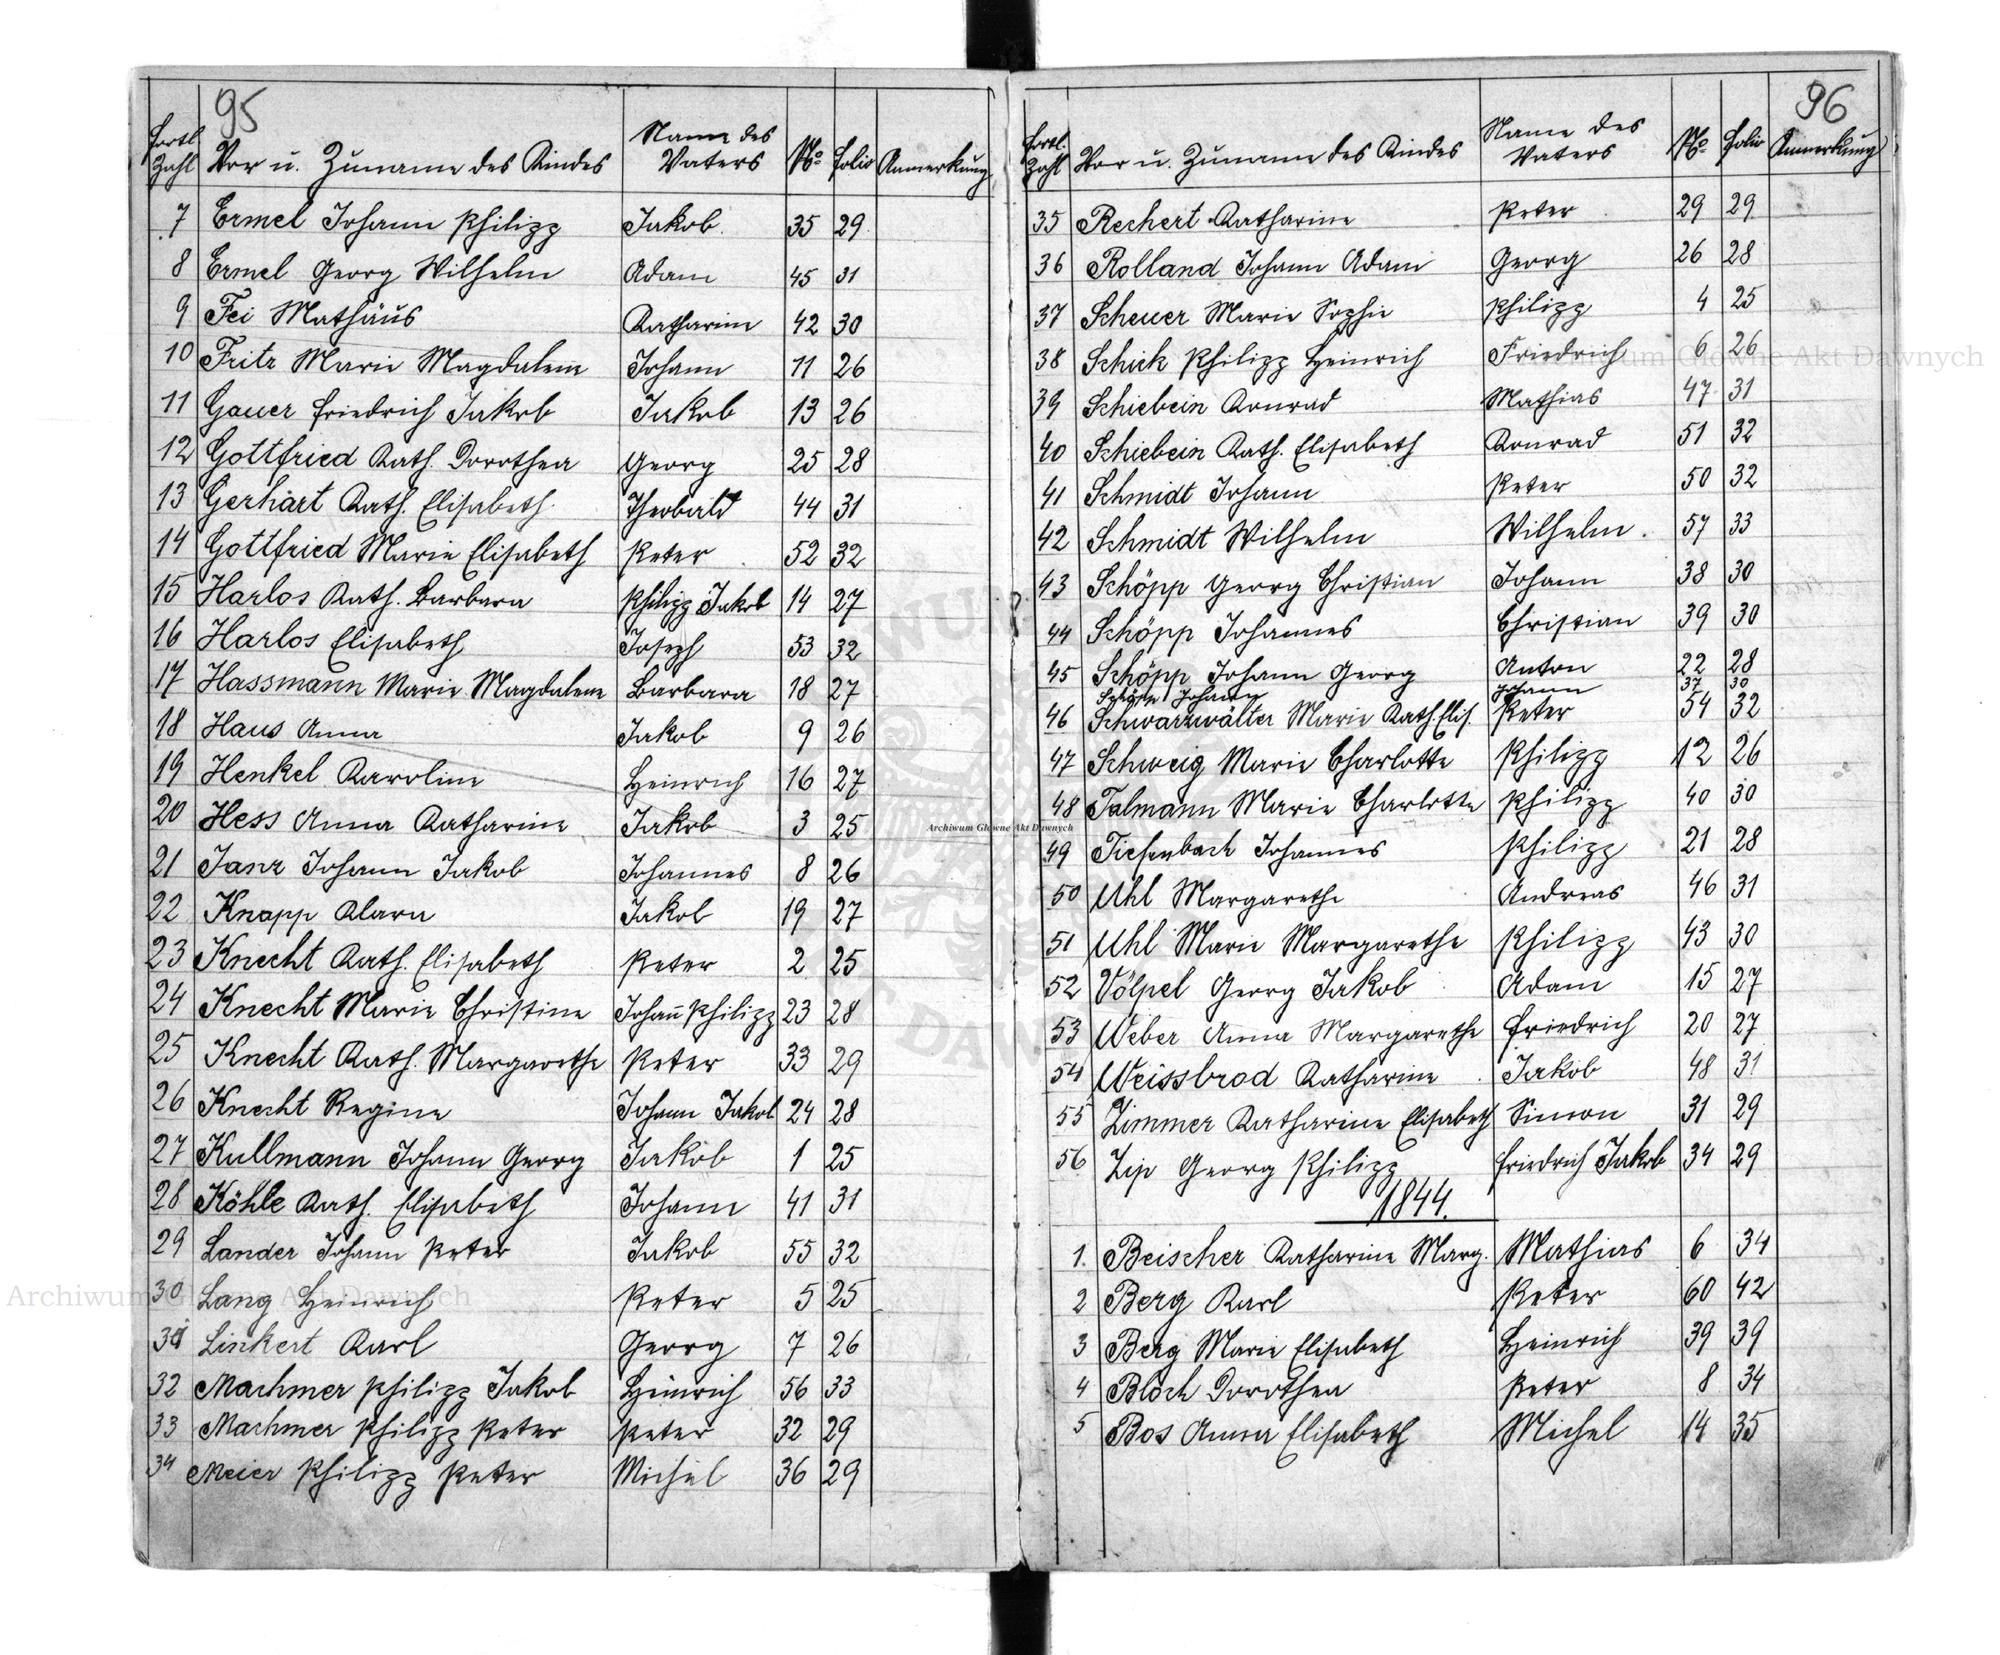 95
Fortl. Zahl Vor u. Zuname des Kindes Name des Vaters No Folio Anmerkung
7 Ermel Johann Philipp Jakob 35 29
8 Ermel Georg Wilhelm Adam 45 31
9 Fei Mathäus Katharine 42 30
10 Fritz Marie Magdalene Johann 11 26
11 Gauer Friedrich Jakob Jakob 13 26
12 Gottfried Kath. Dorothea Georg 25 28
13 Gerhart Kath. Elisabeth Theobald 44 31
14 Gottfried Marie Elisabeth Peter 52 32
15 Harlos Kath. Barbara Philipp Jakob 14 27
16 Harlos Elisabeth Joseph 53 32
17 Hassmann Marie Magdalene Barbara 18 27
18 Haus Anna Jakob 9 26
19 Henkel Karoline Heinrich 16 27
20 Hess Anna Katharine Jakob 3 25
21 Janz Johann Jakob Johannes 8 26
22 Knapp Klara Jakob 19 27
23 Knecht Kath. Elisabeth Peter 2 25
24 Knecht Marie Christine Johañ Philipp 23 28
25 Knecht Kath. Margarethe Peter 33 29
26 Knecht Regine Johann Jakob 24 28
27 Kullmann Johann Georg Jakob 1 25
28 Köhle Kath. Elisabeth Johann 41 31
29 Lander Johann Peter Jakob 55 32
30 Lang Heinrich Peter 5 25
31 Linkert Karl Georg 7 26
32 Machmer Philipp Jakob Heinrich 56 33
33 Machmer Philipp Peter Peter 32 29
34 Meier Philipp Peter Michel 36 29
96
Fortl. Zahl Vor u. Zuname des Kindes Name des Vaters No Folio Anmerkung
35 Rechert Katharine Peter 29 29
36 Rolland Johann Adam Georg 26 28
37 Scheuer Marie Sophie Philipp 4 25
38 Schick Philipp Heinrich Friedrich 6 26
39 Schiebein Konrad Mathias 47 31
40 Schiebein Kath. Elisabeth Konrad 51 32
41 Schmidt Johann Peter 50 32
42 Schmidt Wilhelm Wilhelm. 57 33
43 Schöpp Georg Christian Johann 38 30
44 Schöpp Johannes Christian 39 30
45 Schöpp Johann Georg Anton 22 28
Johann Johann 37 30
46 Schwarzwälter Marie Kath. Elis. Peter 54 32
47 Schweig Marie Charlotte Philipp 12 26
48 Talmann Marie Charlotte Philipp 40 30
49 Tiefenbach Johannes Philipp 21 28
50 Uhl Margarethe Andreas 46 31
51 Uhl Marie Margarethe Philipp 43 30
52 Völpel Georg Jakob Adam 15 27
53 Weber Anna Margarethe Friedrich 20 27
54 Weissbrod Katharine Jakob 48 31
55 Zimmer Katharine Elisabeth Simon 31 29
56 Zip Georg Philipp Friedrich Jakob 34 29
1844.
1. Beischer Katharine Marg. Mathias 6 34
2 Berg Karl Peter 60 42
3 Berg Marie Elisabeth Heinrich 39 39
4 Bloch Dorothea Peter 8 34
5 Bos Anna Elisabeth Michel 14 35
Archiwum Główne Akt Dawnych
Archiwum Główne Akt Dawnych
Archiwum Główne Akt Dawnych